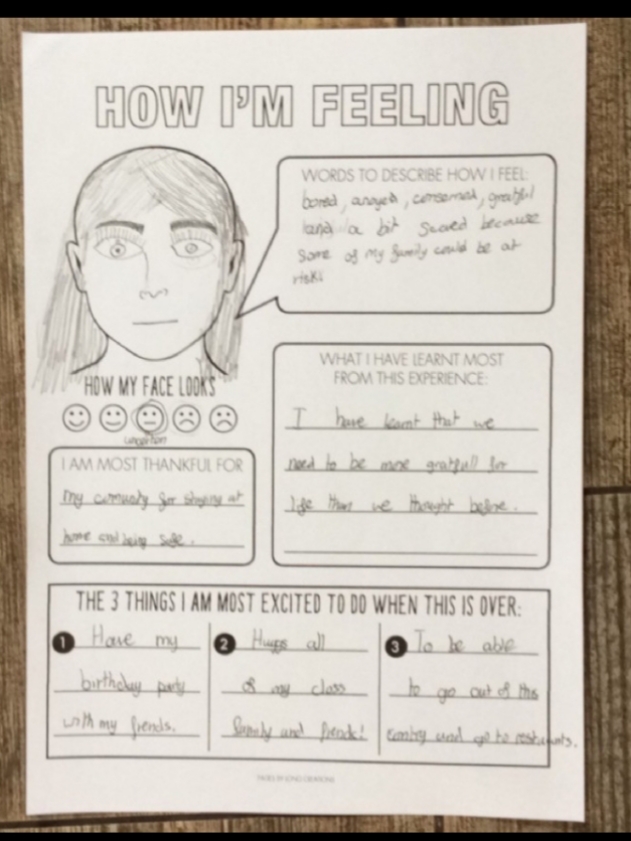 HOW I'M FEELING
WORDS TO DESCRIBE HOW I FEEL:
bored, anoyed, conserned, greatful
and a bit scared because
some of my family could be at
risk!
HOW MY FACE LOOKS
uncertain
I AM MOST THANKFUL FOR
My comunity for staying at
home and being safe.
WHAT I HAVE LEARNT MOST
FROM THIS EXPERIENCE:
I have learnt that we
need to be more gratfull for
life than we thought before.
THE 3 THINGS I AM MOST EXCITED TO DO WHEN THIS IS OVER:
1 Have my
birthday party
with my friends.
2 Huggs all
of my class
family and friends!
3 To be able
to go out of this
contry and go to